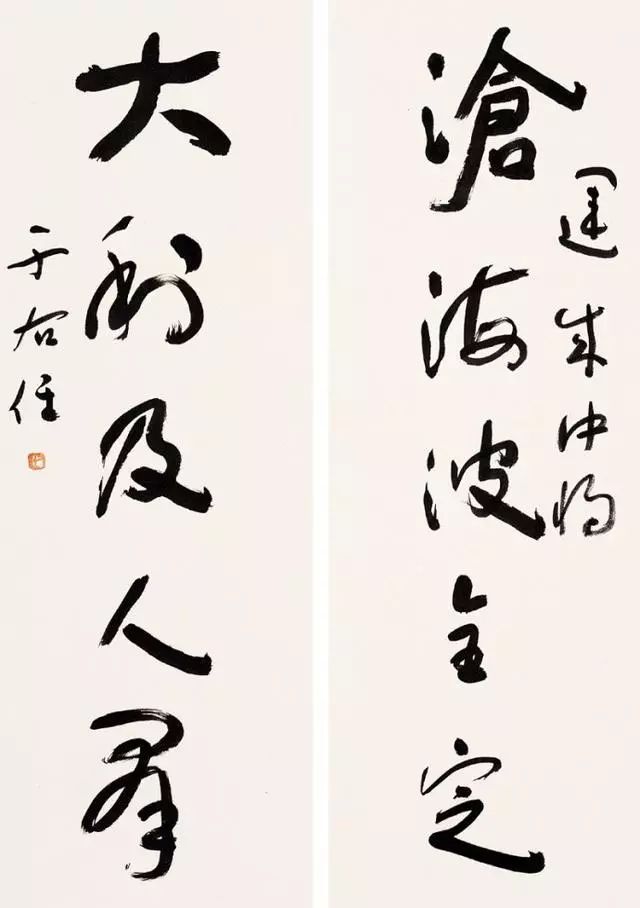 運成中將
滄海波全定
大利及人羣
于右任